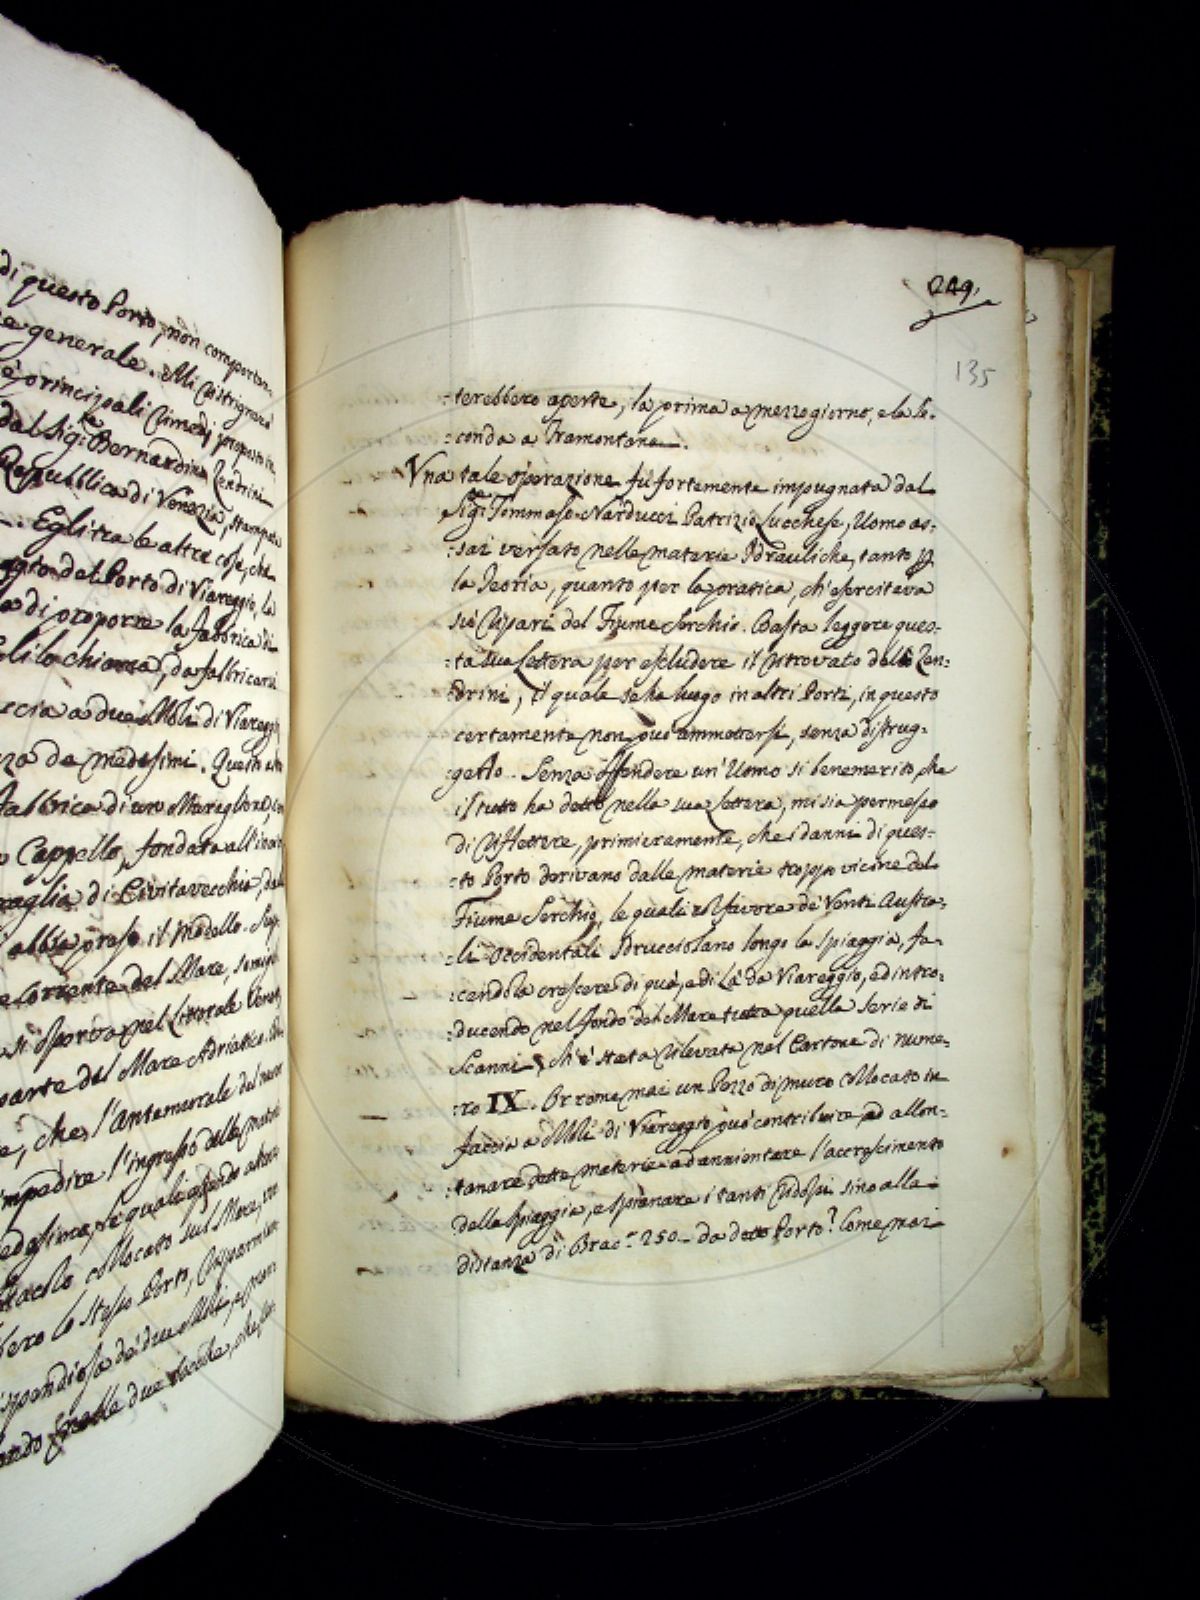 di questo Porto, non comportan-
generale. Mi ristringerò
principali rimedj proposti in
dal Sig.re Bernardino Zendrini
Repubblica di Venezia, stampata
Egli tra le altre cose, che
del Porto di Viareggio, la
di proporre la fabbrica di
lo chiama, da fabbricarsi
a due Moli di Viareggio
de medesimi. Questi
fabbrica di un
Cappello, fondata all'
di Civitavecchia, dal
abbia preso il Modello.
Corrente del Mare,
si osserva nel Littorale Veneto,
parte del Mare Adriatico.
che l'Antemurale
impedire l'ingresso delle materie
le quali
collocato sul Mare,
lo stesso Porto, risparmian-
de' due Moli, e
due bocche, che
249.
135
:terebbero aperte, la prima a mezzogiorno, e la se-
:conda a Tramontana.
Una tale operazione fù fortemente impugnata dal
Sig.re Tommaso Narducci Patrizio Lucchese, Uomo as-
:sai versato nelle materie Idrauliche, tanto p
la Teoria, quanto per la pratica, ch'esercitava
sù i ripari del Fiume Serchio. Basta leggere ques-
:ta sua Lettera per escludere il ritrovato dello Zen-
:drini, il quale se ha luogo in altri Porti, in questo
certamente non può ammettersi, senza distrug-
:gerlo. Senza offendere un'Uomo si benemerito, che
il tutto ha detto nella sua Lettera, mi sia permesso
di riflettere, primieramente, che i danni di ques-
:to Porto derivano dalle materie troppo vicine del
Fiume Serchio, le quali col favore de' Venti Austra-
:li Occidentali sdrucciolano longo la spiaggia, fa-
:cendola crescere di quà, e di là da Viareggio, ed intro-
:ducendo nel fondo del Mare tutta quella serie di
Scanni, ch'è stata rilevata nel Cartone di nume-
:ro IX. Or come mai un Pezzo di muro collocato in
faccia a Moli di Viareggio, può contribuire ad allon-
:tanare dette materie ad annientare l'accrescimento
della spiaggia, e spianare i tanti ridossi sino alla
distanza di Brac.e 250 - da detto Porto? Come mai